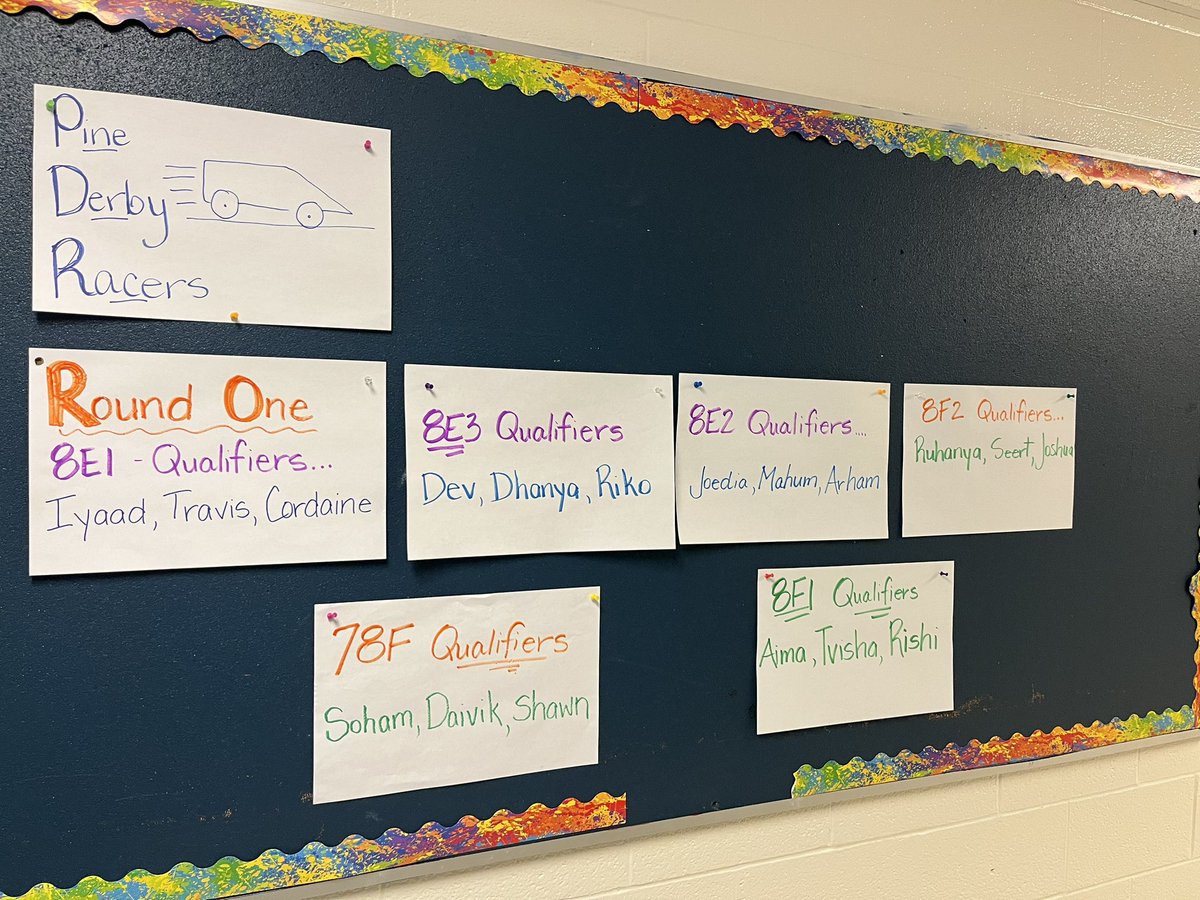 Pine
Derby
Racers
Round One
8E1 - Qualifiers...
Iyaad, Travis, Cordaine
8E3 Qualifiers
Dev, Dhanya, Riko
8E2 Qualifiers....
Joedia, Mahum, Arham
8F2 Qualifiers...
Ruhanya, Seert, Joshua
78F Qualifiers
Soham, Daivik, Shawn
8F1 Qualifiers
Aima, Tvisha, Rishi